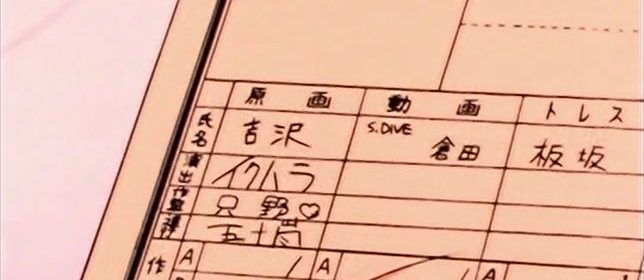 原画 動画 トレス
氏名 吉沢 S.DIVE 倉田 板坂
演出 イクハラ
作監 只野♡
五十嵐
作 A 1 A 1 A